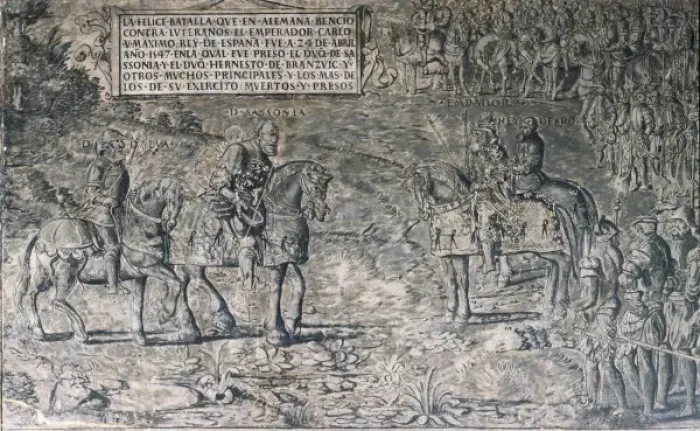 LA·FELICE·BATALLA·QVE·EN·ALEMANA·BENCIO
CONTRA·LVTERANOS·EL·EMPERADOR·CARLO
V·MAXIMO·REY·DE·ESPAÑA·FVE·A·24·DE·ABRIL
AÑO·1547·EN·LA·QVAL·FVE·PRESO·EL·DVQ·DE·SA
SSONIA·Y·EL·DVQ·HERNESTO·DE·BRANZVIC·Y
OTROS·MVCHOS·PRINCIPALES·Y·LOS·MAS·DE
LOS·DE·SV·EXERCITO·MVERTOS·Y·PRESOS
EMPADOR
D·SASSONIA
ALVA